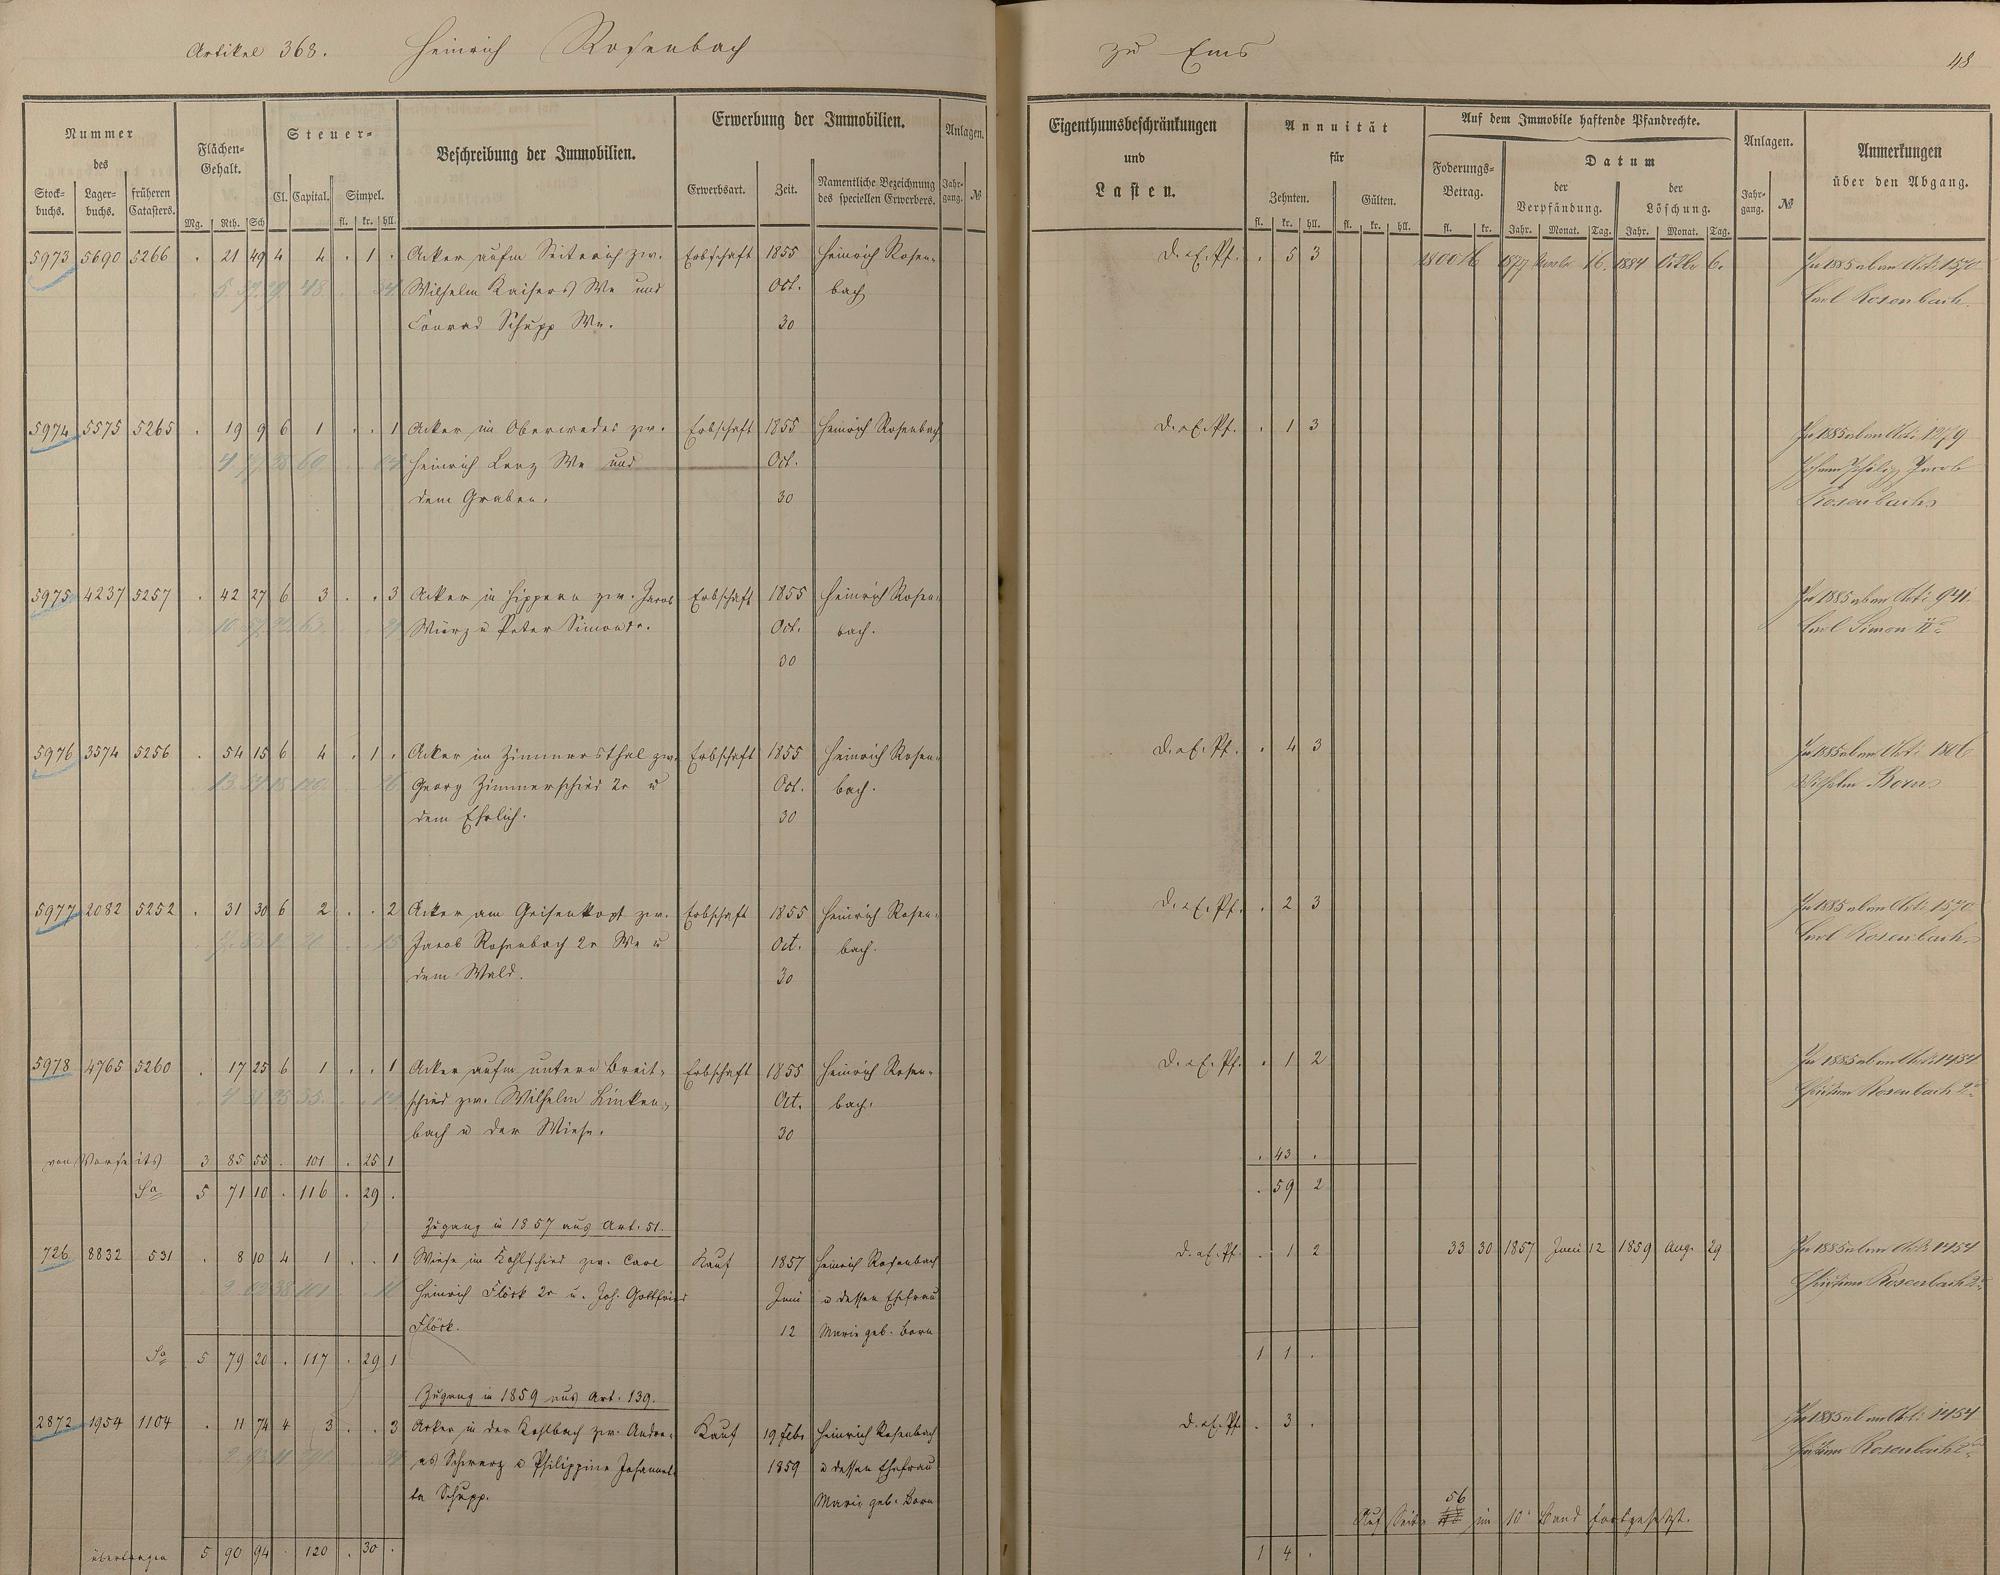 Artikel 368. Heinrich Rosenbach zu Ems 48
Nummer des
Stockbuchs. Lagerbuchs. früheren Catasters.
Flächen-Gehalt.
Mg. Rth. Sch
Steuer-
Cl. Capital. Simpel.
fl. kr. hll.
Beschreibung der Immobilien.
Erwerbung der Immobilien.
Erwerbsart. Zeit. Namentliche Bezeichnung des speciellen Erwerbers.
Anlagen.
Jahrgang. №
Eigenthumsbeschränkungen
und
Lasten.
Annuität
für
Zehnten. Gülten.
fl. kr. hll. fl. kr. hll.
Auf dem Immobile haftende Pfandrechte.
Foderungs-Betrag.
fl. kr.
Datum
der Verpfändung. der Löschung.
Jahr. Monat. Tag. Jahr. Monat. Tag.
Anlagen.
Jahrgang. №
Anmerkungen
über den Abgang.
5973 5690 5266 . 21 49 4 4 . 1 . Acker aufm Seiterich zw. Erbschaft 1855 Heinrich Rosen- D. E. Pf. . 5 3 1800 1879 16. 1884 Octbr 6. In 1885 ab an Art. 1570
Wilhelm Kaisers We und Oct. bach Carl Rosenbach.
Conrad Schupp We. 30
5974 5575 5265 . 19 9 6 1 . . 1 Acker im Oberwedes zw. Erbschaft 1855 Heinrich Rosenbach D. E. Pf. . 1 3 In 1885 ab an Art. 1279
Heinrich Lenz We und Oct. Johann Philipp Jacob
dem Graben. 30 Rosenbach
5975 4237 5257 . 42 27 6 3 . . 3 Acker in Hippern zw. Jacob Erbschaft 1855 Heinrich Rosen- In 1885 ab an Art. 941.
Würz u Peter Simon 2r. Oct. bach. Carl Simon II
30
5976 3574 5256 . 54 15 6 4 . 1 . Acker im Zimmersthal zw. Erbschaft 1855 Heinrich Rosen- D. E. Pf. . 4 3 In 1885 ab an Art. 1806
Georg Zimmerschied 2r u Oct. bach. Wilhelm Born
dem Ehrlich. 30
5977 2082 5252 . 31 30 6 2 . . 2 Acker am Geisenkopf zw. Erbschaft 1855 Heinrich Rosen- D. E. Pf. . 2 3 In 1885 ab an Art. 1570
Jacob Rosenbach 2r We u Oct. bach. Carl Rosenbach.
dem Wald. 30
5978 4765 5260 . 17 25 6 1 . . 1 Acker aufm untern Breit- Erbschaft 1855 Heinrich Rosen- D. E. Pf. . 1 2 In 1885 ab an Art. 1454
schied zw. Wilhelm Linken- Oct. bach. Rosenbach 2r
bach u der Wiese. 30
von Vorseits 3 85 55 . 101 . 25 1 . 43 .
Sa 5 71 10 . 116 . 29 . . 59 2
Zugang in 1857 aus Art. 51.
726 8832 531 . 8 10 4 1 . . 1 Wiese im Kohlschied zw. Carl Kauf 1857 Heinrich Rosenbach D. E. Pf. . 1 2 33 30 1857 Juni 12 1859 Aug. 29 In 1885 ab an Art. 1454
Heinrich Flöck 2r u. Joh. Gottfried Juni u dessen Ehefrau Rosenbach 2r
Flöck. 12 Marie geb. Born
Sa 5 79 20 . 117 . 29 1 1 1 .
Zugang in 1859 aus Art. 139.
2872 1954 1104 . 11 74 4 3 . . 3 Acker in der Kohlbach zw. Andre- Kauf 19 Febr Heinrich Rosenbach D. E. Pf. . 3 . In 1885 ab an Art. 1454
as Schwarz u Philippine Johannet- 1859 u dessen Ehefrau Rosenbach 2r
ta Schupp. Marie geb. Born
Auf Seite 56 im 10 Band fortgesetzt.
übertragen 5 90 94 . 120 . 30 . 1 4 .